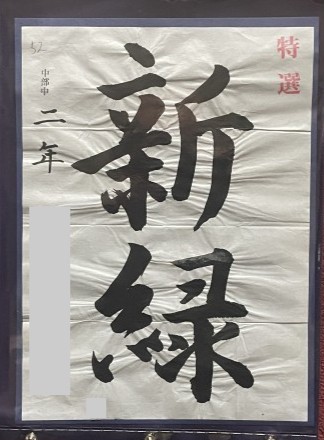 特選
新緑
中部中
二年
52